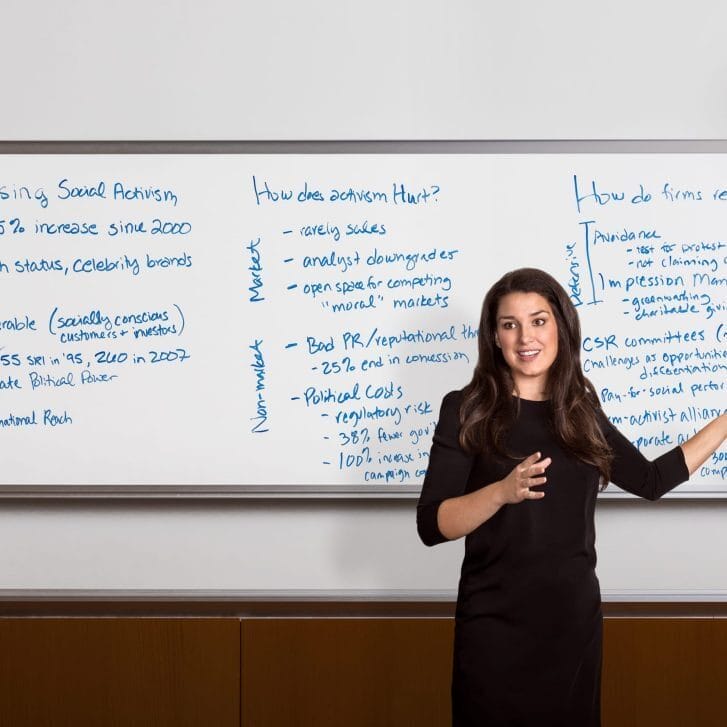 sing Social Activism
5% increase since 2000
h status, celebrity brands
erable (socially conscious
customers + investors)
55 SRI in '95, 260 in 2007
ate Political Power
national Reach
How does activism Hurt?
Market
- rarely sales
- analyst downgrades
- open space for competing
"moral" markets
Non-market
- Bad PR/reputational th
- 25% end in concession
- Political Costs
- regulatory risk
- 38% fewer gov
- 100% increase in
campaign co
How do firms re
Defensive
Avoidance
- test for protest
- not claiming
Impression Man
- greenwashing
- charitable givi
CSR committees
Challenges as opportuniti
Pay-for-social perfor
m-activist allianc
porate a
comp